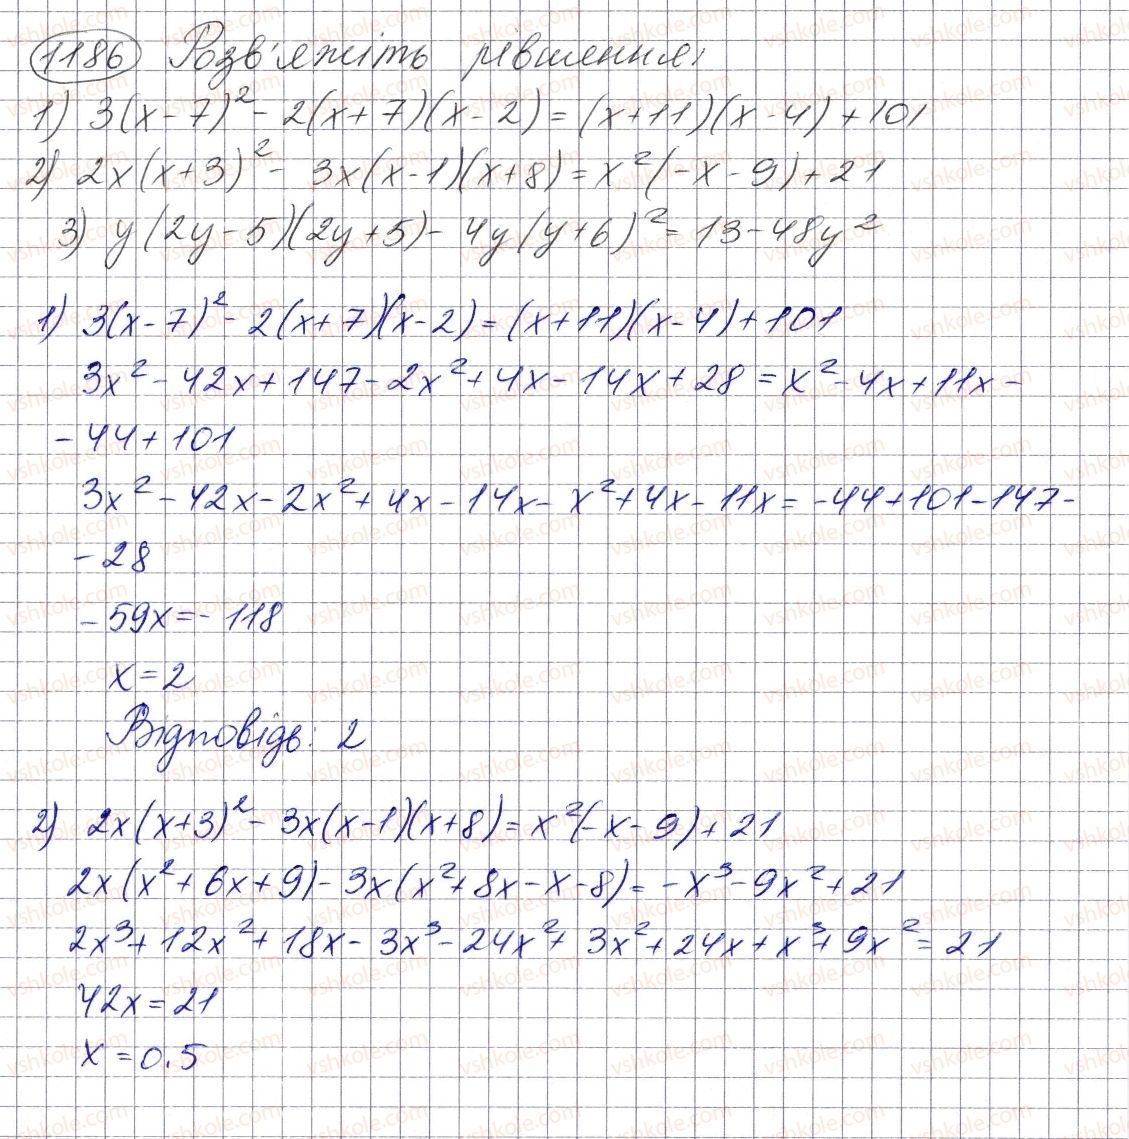 1186 Розв'яжіть рівняння:
1) 3(x-7)² - 2(x+7)(x-2) = (x+11)(x-4) + 101
2) 2x(x+3)² - 3x(x-1)(x+8) = x²(-x-9) + 21
3) y(2y-5)(2y+5) - 4y(y+6)² = 13 - 48y²
1) 3(x-7)² - 2(x+7)(x-2) = (x+11)(x-4) + 101
3x² - 42x + 147 - 2x² + 4x - 14x + 28 = x² - 4x + 11x -
- 44 + 101
3x² - 42x - 2x² + 4x - 14x - x² + 4x - 11x = -44 + 101 - 147 -
- 28
-59x = -118
x = 2
Відповідь: 2
2) 2x(x+3)² - 3x(x-1)(x+8) = x²(-x-9) + 21
2x(x² + 6x + 9) - 3x(x² + 8x - x - 8) = -x³ - 9x² + 21
2x³ + 12x² + 18x - 3x³ - 24x² + 3x² + 24x + x³ + 9x² = 21
42x = 21
x = 0.5